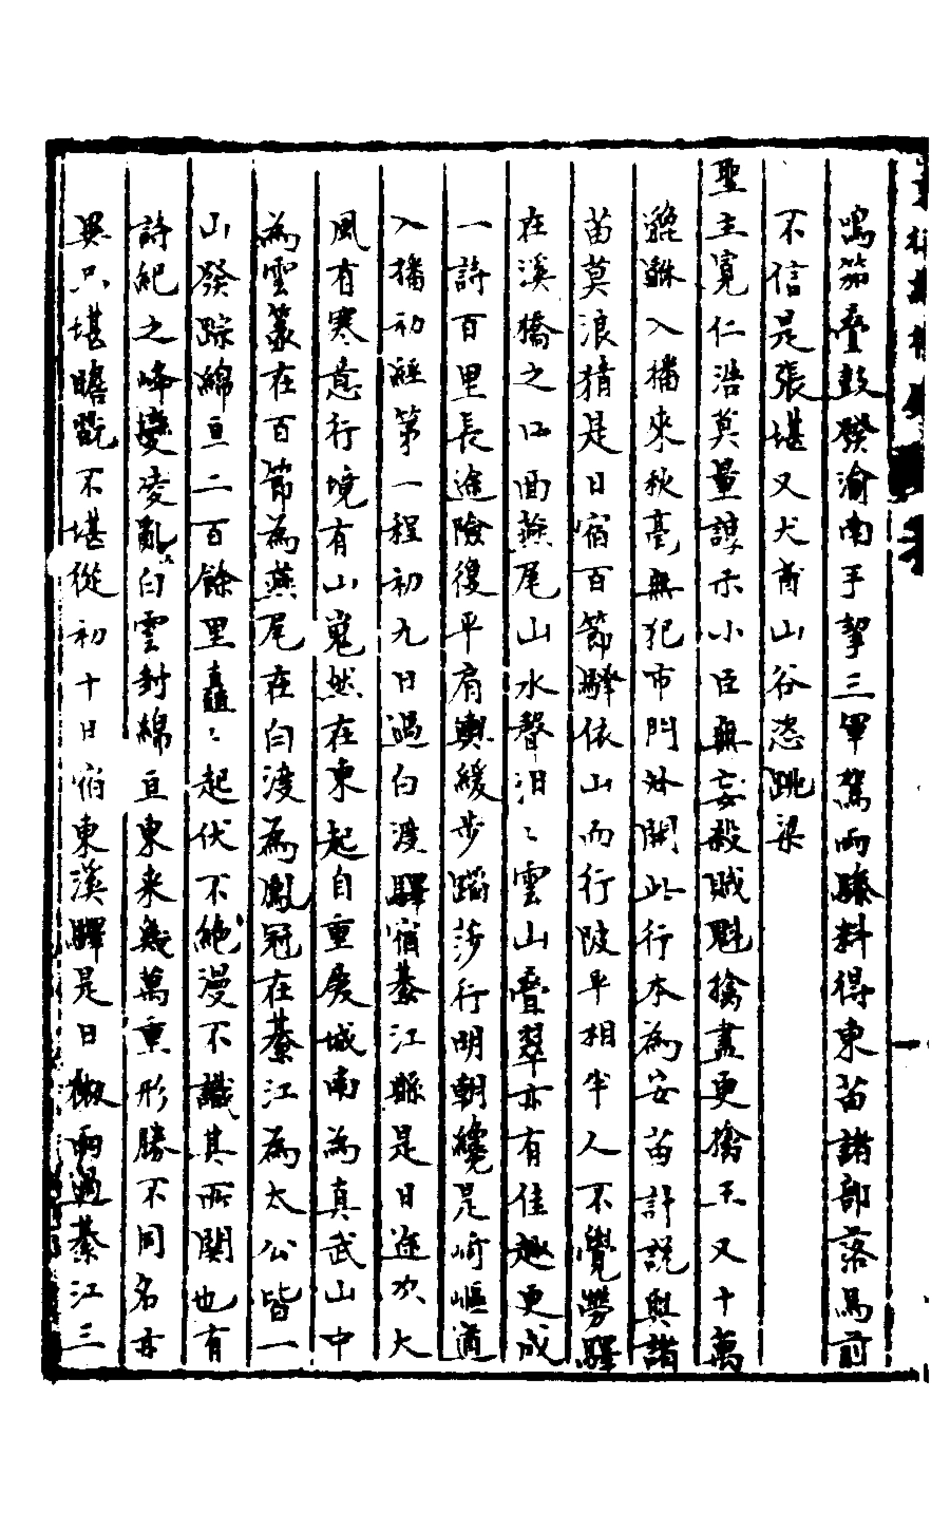 鳴笳疊鼓發渝南手挈三軍駕兩驂料得東苗諸部落馬前
不信是張堪又犬酋山谷恣跳梁
聖主寬仁浩莫量諄示小臣無妄殺賊魁擒盡更擒王又十萬
貔貅入播來秋毫無犯市門開此行本為安苗計說與諸
苗莫浪猜是日宿百節驛依山而行陂平相半人不覺勞驛
在溪橋之口面燕尾山水聲汨〻雲山疊翠亦有佳趣更成
一詩百里長途險復平肩輿緩步蹈莎行明朝纔是崎嶇道
入播初經第一程初九日過白渡驛宿綦江縣是日途次大
風有寒意行境有山嵬然在東起自重慶城南為真武山中
為雲篆在百節為燕尾在白渡為鳳冠在綦江為太公皆一
山發踪綿亘二百餘里矗〻起伏不絕漫不識其所關也有
詩紀之峰巒凌亂白雲封綿亘東來幾萬重形勝不同名亦
異只堪瞻翫不堪從初十日宿東溪驛是日微雨過綦江三